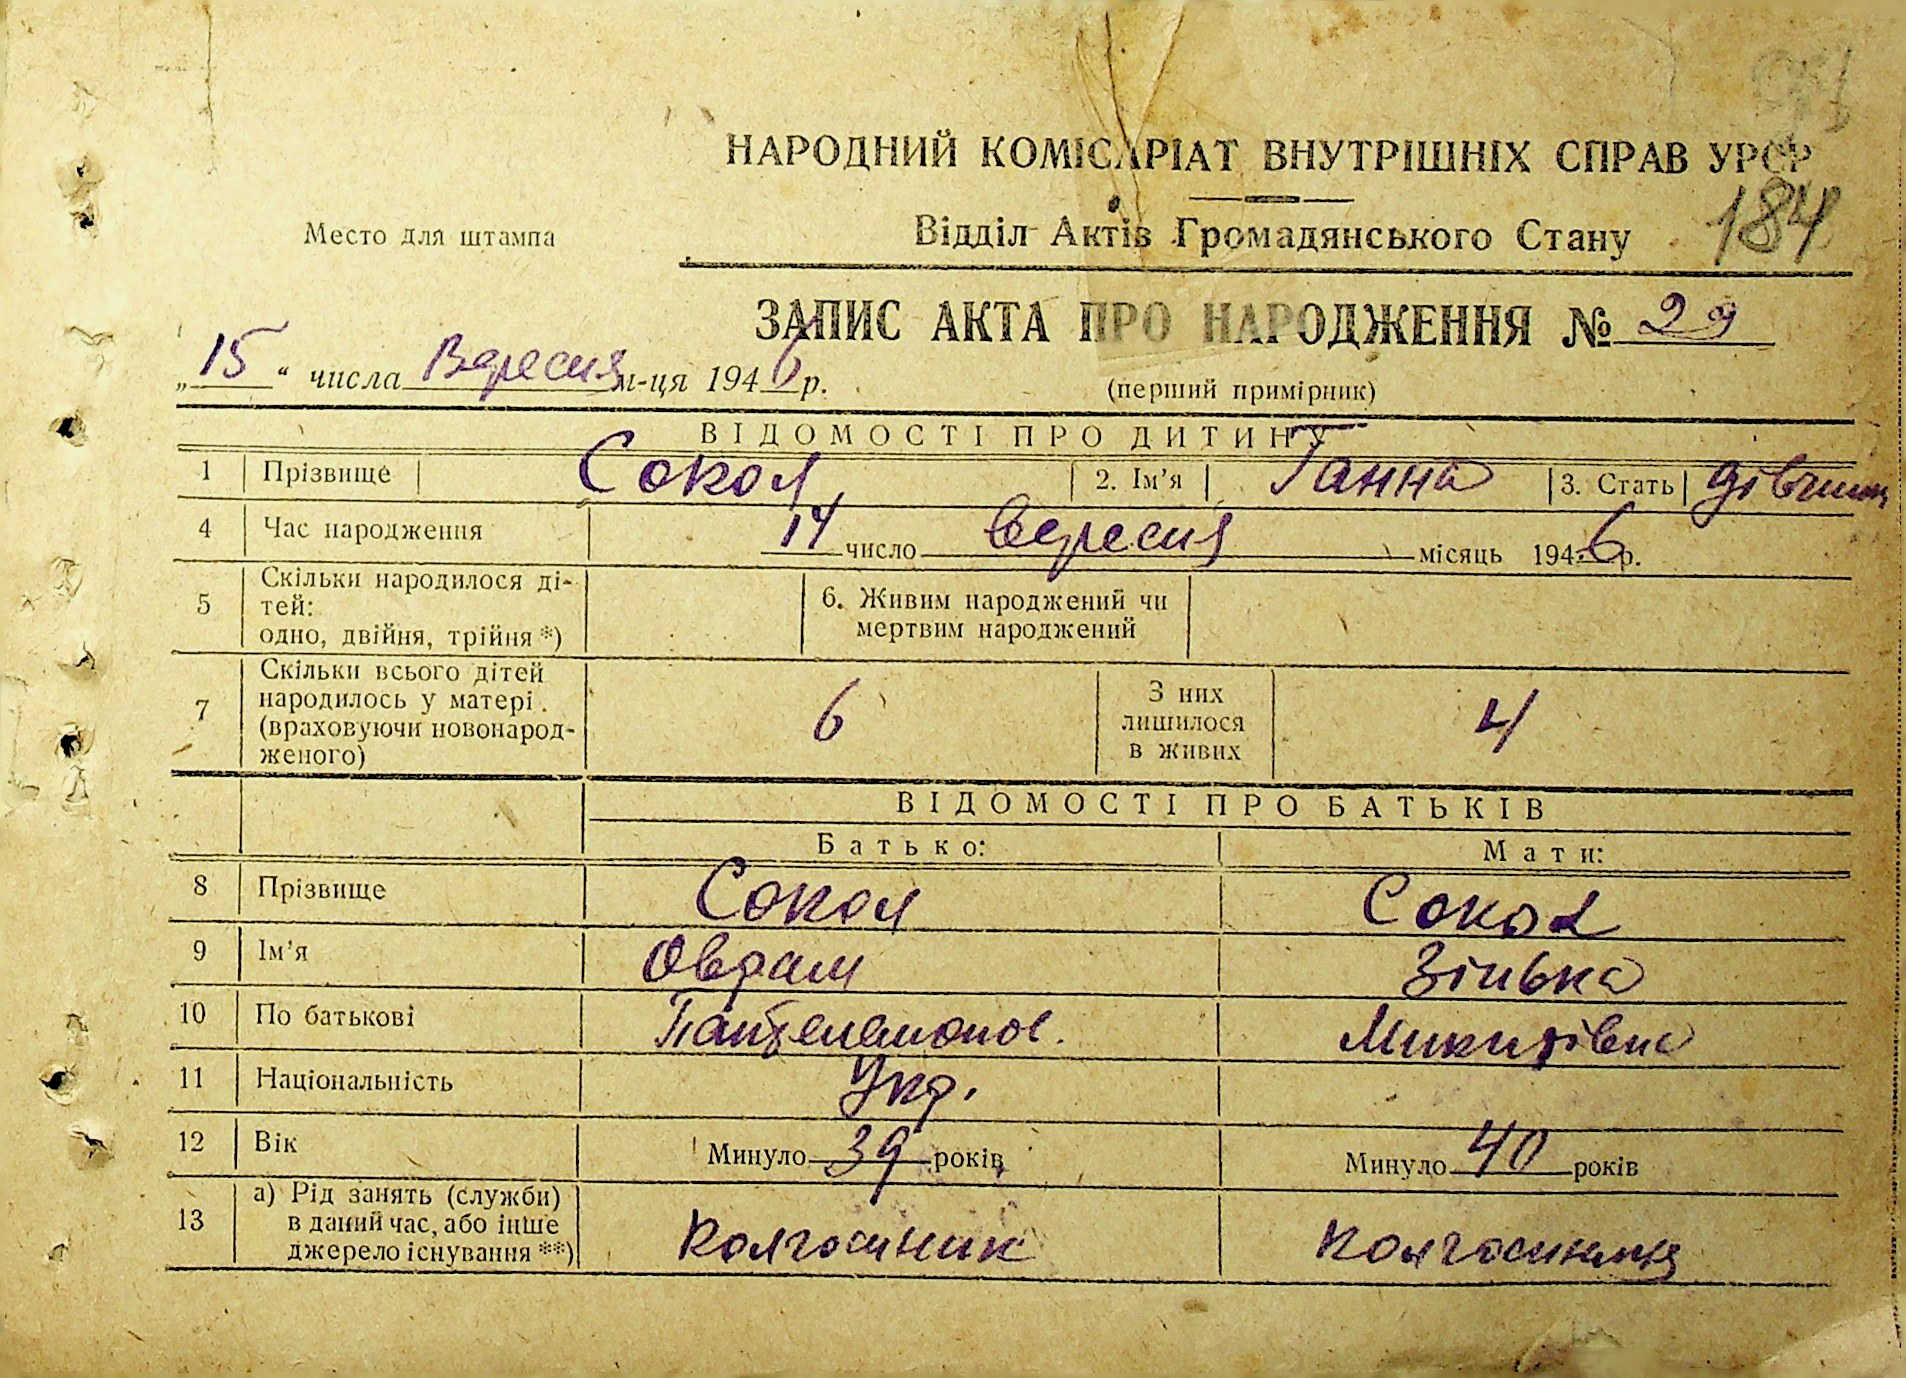 НАРОДНИЙ КОМІСАРІАТ ВНУТРІШНІХ СПРАВ УРСР
184
Место для штампа
Відділ Актів Громадянського Стану
ЗАПИС АКТА ПРО НАРОДЖЕННЯ № 29
„15“ числа Вересня м-ця 1946 р.
(перший примірник)
ВІДОМОСТІ ПРО ДИТИНУ
1 Прізвище Сокол 2. Ім’я Ганна 3. Стать дівчина
4 Час народження 14 число вересня місяць 1946 р.
5 Скільки народилося ді-
тей:
одно, двійня, трійня *)
6. Живим народжений чи
мертвим народжений
7 Скільки всього дітей
народилось у матері.
(враховуючи новонарод-
женого)
6
З них
лишилося
в живих
4
ВІДОМОСТІ ПРО БАТЬКІВ
Батько: Мати:
8 Прізвище Сокол Сокол
9 Ім’я Оврам Зінька
10 По батькові Пантелемонов. Микитівна
11 Національність Укр.
12 Вік Минуло 39 років Минуло 40 років
13 а) Рід занять (служби)
в даний час, або інше
джерело існування **)
Колгосник колгосниця